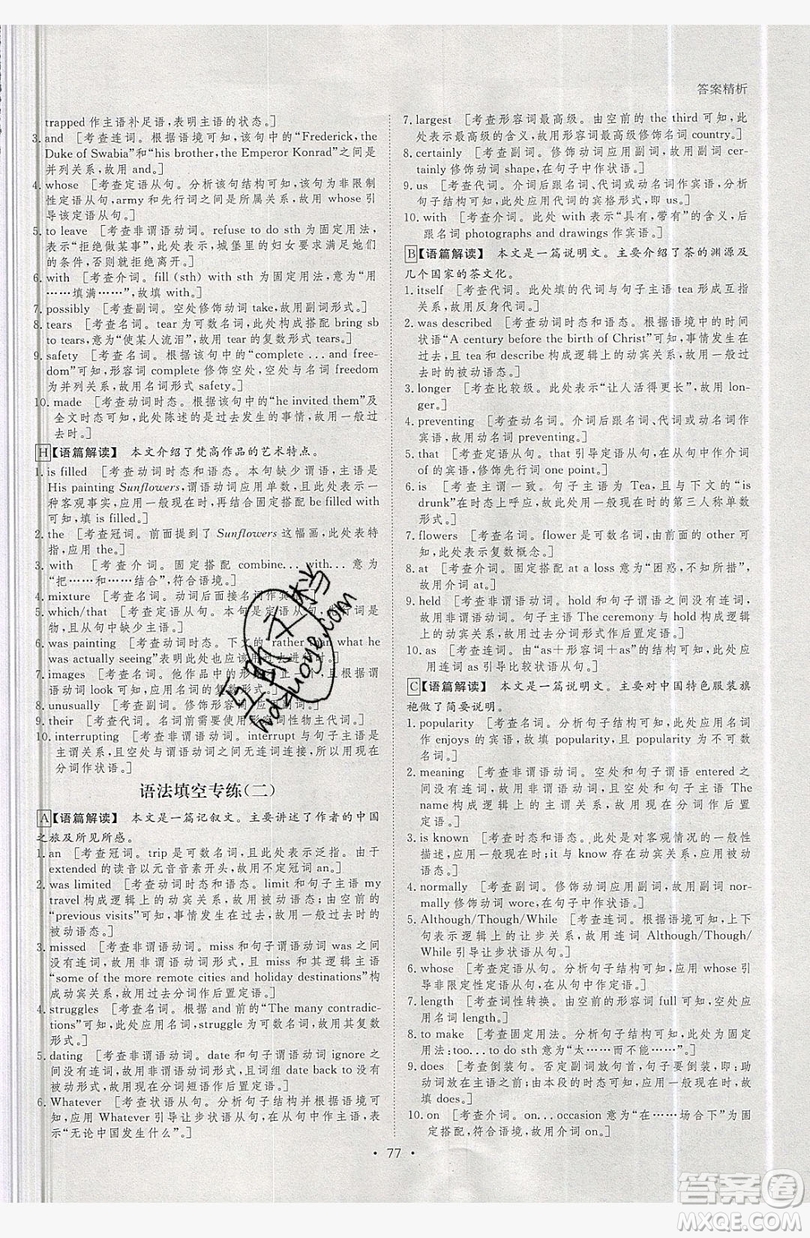 答案精析
trapped 作主语补足语，表明主语的状态。]
3. and [考查连词。根据语境可知，该句中的“Frederick, the
Duke of Swabia”和“his brother, the Emperor Konrad”之间是
并列关系，应用连词 and。]
4. whose [考查定语从句。分析该句结构可知，该句为非限制
性定语从句，army 和先行词之间是所属关系，应用 whose 引
导该定语从句。]
5. to leave [考查非谓语动词。refuse to do sth 为固定用法，
表示“拒绝做某事”，此处表示，城堡里的妇女要求满足她们
的条件，否则拒绝离开。]
6. with [考查介词。fill (sth) with 为固定用法，意为“用
……填满……”，故应用介词 with。]
7. possibly [考查副词。空处修饰动词 take，故用副词形式。]
8. tears [考查名词。tear 为可数名词，此处构成搭配 bring sb
to tears，意为“使某人流泪”，故用 tear 的复数形式 tears。]
9. safety [考查名词。由该句中的“complete ... and free-
dom”可知，形容词 complete 修饰空处，空处与名词 freedom
为并列关系，故应用名词形式 safety。]
10. made [考查动词时态。由该句中的“he invited them”及
全文时态可知，此处陈述的是过去发生的事情，故用一般过
去时。]
H【语篇解读】 本文介绍了梵高作品的艺术特点。
1. is filled [考查动词时态和语态。本句缺少谓语，主语是
His painting Sunflowers，谓语动词应用单数，且此处表示一
种客观事实，应用一般现在时，再结合固定搭配 be filled with
可知，填 is filled。]
2. the [考查冠词。前面提到了 Sunflowers 这幅画，此处表特
指，应用 the。]
3. with [考查介词。固定搭配 combine... with...，意为
“把……和……结合”，符合语境。]
4. mixture [考查名词。动词后面接名词作宾语。]
5. which/that [考查定语从句。本句是定语从句，先行词是物，
且从句中缺少主语。]
6. was painting [考查动词时态。下文的“rather than what he
was actually seeing”表明此处也应该用过去进行时。]
7. images [考查名词。他作品中的形象看起来很真实，根据谓
语动词 look 可知，应用名词的复数形式。]
8. unusually [考查副词。修饰形容词应用副词。]
9. their [考查代词。名词前需要用形容词性物主代词。]
10. interrupting [考查非谓语动词。interrupt 与句子主语是
主谓关系，且空处与谓语动词之间无连词连接，故用现在
分词作状语。]
语法填空专练(二)
A【语篇解读】 本文是一篇记叙文。主要讲述了作者的中国
之旅及所见所感。
1. an [考查冠词。trip 是可数名词，且此处表示泛指。由于
extended 的读音以元音音素开头，故用不定冠词 an。]
2. was limited [考查动词时态和语态。limit 和句子主语 my
travel 构成逻辑上的动宾关系，故用被动语态。由前面的
“previous visits”可知，事情发生在过去，故用一般过去时的
被动语态。]
3. missed [考查非谓语动词。miss 和句子谓语动词 was 之间
没有连词，故用非谓语动词形式。又因 miss 和其逻辑主语
“some of the more remote cities and holiday destinations”构
成动宾关系，故用过去分词作后置定语。]
4. struggles [考查名词。由并列成分中的“The many contradic-
tions”可知，此处应用名词，struggle 为可数名词，故用其复数
形式。]
5. dating [考查非谓语动词。date 和句子谓语动词 ignore 之
间没有连词，故用非谓语形式，且词组 date back to 没有被
动语态，故用现在分词作后置定语。]
6. Whatever [考查状语从句。分析句子结构并根据语境可
知，应用 Whatever 引导让步状语从句，在从句中作主语，表
示“无论中国发生什么”。]
7. largest [考查形容词最高级。由空前的 the third 可知，此
处表示最高级的含义，故用形容词最高级修饰名词 country。]
8. certainly [考查副词。修饰动词应用副词，故用副词 cer-
tainly 修饰动词 shape，在句子中作状语。]
9. us [考查代词。介词后跟名词、代词或动名词形式作宾语，
故此处应用代词的宾格形式，即 us。]
10. with [考查介词。此处 with 表示“具有，带有”的含义，后
后跟名词 photographs and drawings 作宾语。]
B【语篇解读】 本文是一篇说明文。主要介绍了茶的渊源及
几个国家的茶文化。
1. itself [考查代词。此处填的代词与主语 tea 形成互指
关系，故使用反身代词。]
2. was described [考查动词时态和语态。根据语境中的时间
状语“A century before the birth of Christ”可知，事情发生在过
去，且 tea 和 describe 构成逻辑上的动宾关系，故用被动语态。]
3. longer [考查比较级。此处表示“让人活得更长”，故用 lon-
ger。]
4. preventing [考查动名词。介词后跟名词、代词或动名词作
宾语，故用动名词 preventing。]
5. that [考查定语从句。that 引导定语从句，在从句中作 of
的宾语，修饰先行词 one point。]
6. is [考查主谓一致。句子主语为 Tea，且与下文的“is
drunk”在时态上呼应，故用一般现在时的第三人称单数
形式。]
7. flowers [考查名词。flower 是可数名词，由空前的 or 可
知，此处表示复数概念。]
8. at [考查介词。固定搭配 at a loss，意为“困惑，不知所措”，
故用介词 at。]
9. held [考查非谓语动词。hold 和句子谓语动词之间没有连
词，故用非谓语形式。The ceremony 与 hold 构成逻辑上的
动宾关系，故用过去分词作后置定语。]
10. as [考查状语从句。由“as+形容词+as”的固定用法可知，
应用 as 引导比较状语从句。]
C【语篇解读】 本文是一篇说明文。主要对中国特色服装旗
袍做了简要说明。
1. popularity [考查名词。分析句子结构可知，应用名词
作 enjoys 的宾语，故填 popularity。popularity 是不可数
名词。]
2. meaning [考查非谓语动词。分析句子可知，谓语 entered 之
间没有连词，故用非谓语形式，且两者构成逻辑上的主谓关
系，故用现在分词。]
3. is known [考查动词时态和语态。此处是对客观情况的一般
性描述，应用一般现在时，且 it 与 know 存在动宾关系，应用被动
语态。]
4. normally [考查副词。修饰动词应用副词，故用副词 nor-
mally 修饰动词 wore，在句子中作状语。]
5. Although/Though/While [考查连词。根据语境可知，上下
句表示逻辑上的让步关系，故用连词 Although/Though/
While 引导让步状语从句。]
6. whose [考查定语从句。分析句子结构可知，应用 whose 引
导非限定性定语从句，且在从句中作定语。]
7. length [考查词性转换。由空前的形容词可知，此处应用名
词形式。]
8. to make [考查固定用法。分析句子结构可知，此处应用固
定用法：too... to do sth 意为“太……而不能……”。]
9. does [考查倒装句。否定副词放句首，句子要倒装，即助
动词放在主语之前；由本段的时态可知，此处应用一般现
在时。]
10. on [考查介词。on... occasion 意为“在……场合下”，为固
定搭配，符合语境，故用介词 on。]
• 77 •
互助文档
hdzuoye.com
答案圈
MXQE.COM